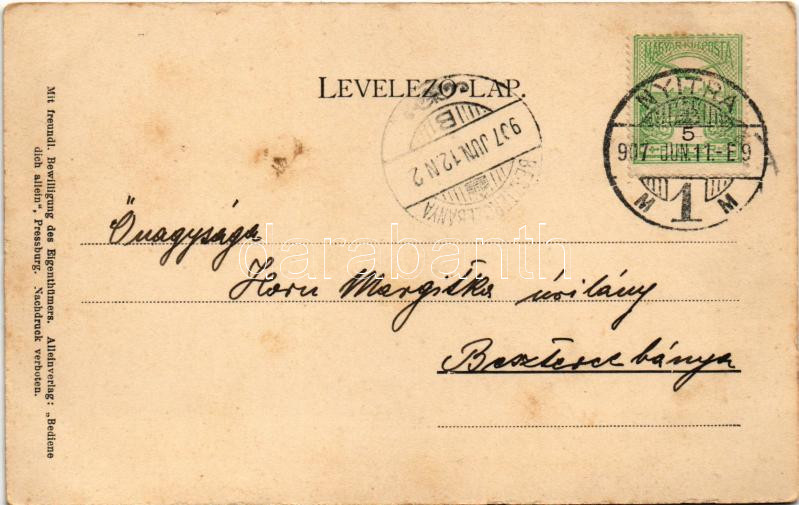 LEVELEZŐ-LAP.
MAGYAR KIR. POSTA
NYITRA
5
907 JUN.11.-E9
M 1 M
BESZTERCZEBÁNYA
907 JUN.12.N 2
B
Őnagysága
Horn Margitka úrilány
Besztercebánya
darabanth
Mit freundl. Bewilligung des Eigenthümers. Alleinverlag: „Bediene
dich allein“, Pressburg. Nachdruck verboten.